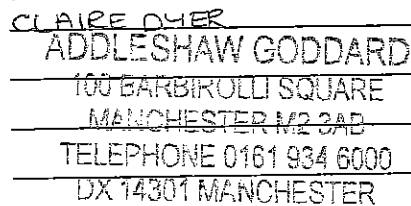 CLAIRE DYER
ADDLESHAW GODDARD
100 BARBIROLLI SQUARE
MANCHESTER M2 3AB
TELEPHONE 0161 934 6000
DX 14301 MANCHESTER